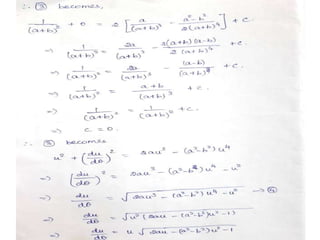 ∴ ③ becomes,
1/(a+b)² + 0 = 2 [ a/(a+b)³ - (a²-b²)/2(a+b)⁴ ] + c.
⇒ 1/(a+b)² = 2a/(a+b)³ - 2(a+b)(a-b)/2(a+b)⁴ + c.
⇒ 1/(a+b)² = 2a/(a+b)³ - (a-b)/(a+b)³ + c.
⇒ 1/(a+b)² = (a+b)/(a+b)³ + c.
⇒ 1/(a+b)² = 1/(a+b)² + c.
⇒ c = 0.
∴ ③ becomes
u² + (du/dθ)² = 2au³ - (a²-b²)u⁴
⇒ (du/dθ)² = 2au³ - (a²-b²)u⁴ - u²
⇒ du/dθ = √(2au³ - (a²-b²)u⁴ - u²) → ④
⇒ du/dθ = √(u²(2au - (a²-b²)u² - 1))
⇒ du/dθ = u √(2au - (a²-b²)u² - 1)